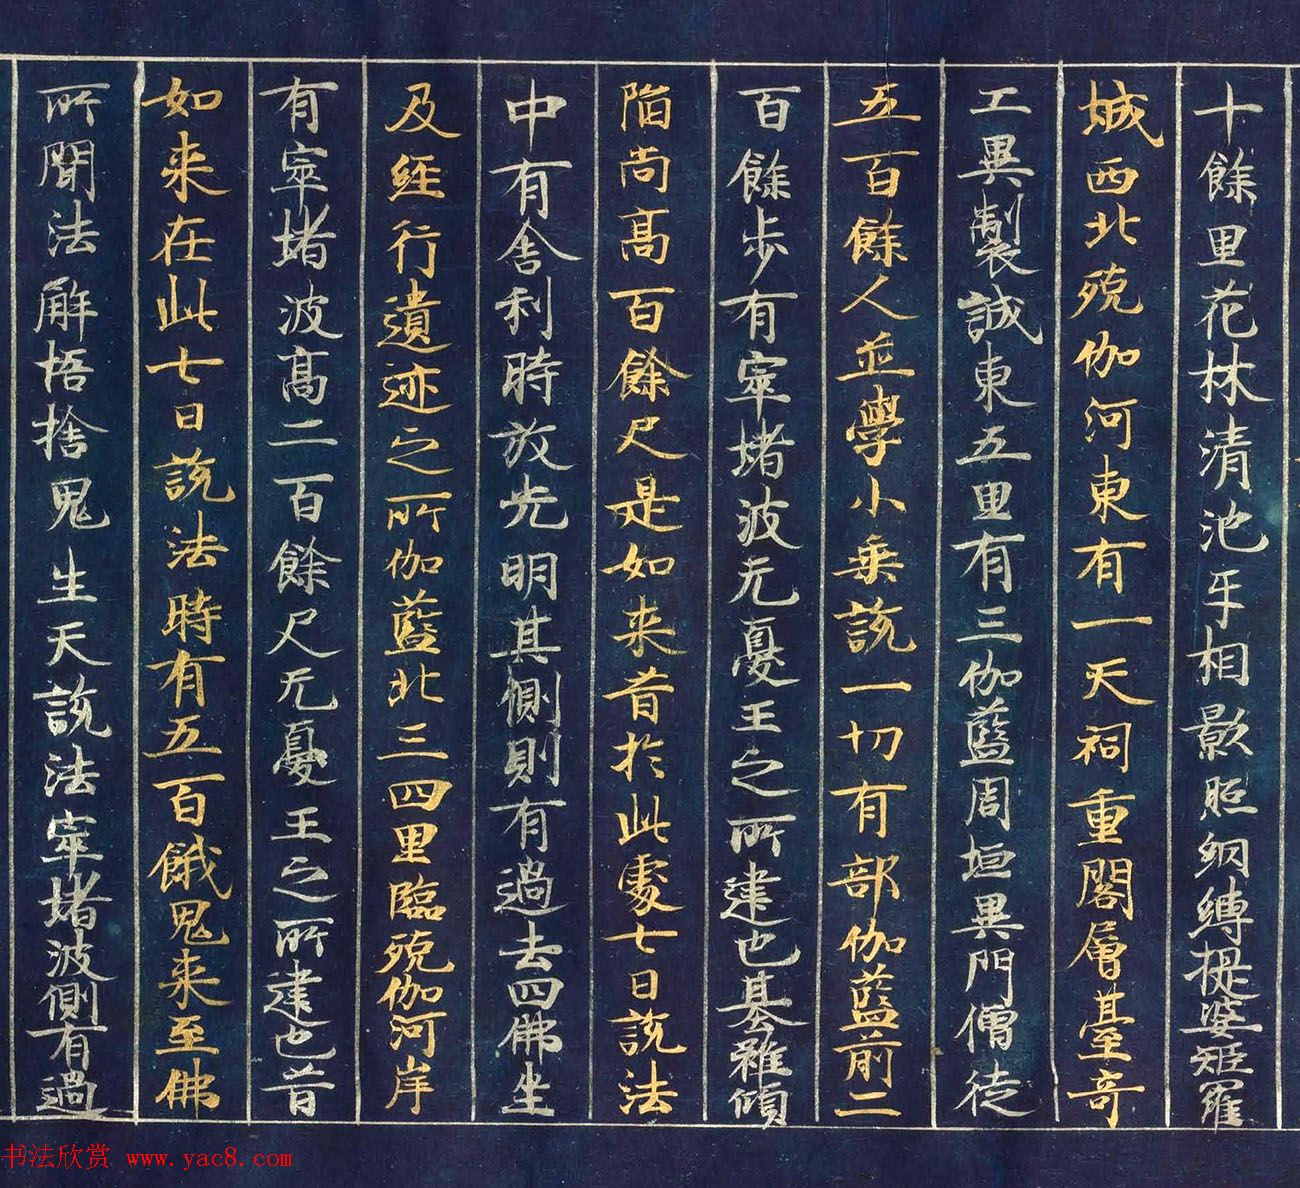 十餘里花林清池牙相影照納縛提婆矩羅
城西北殑伽河東有一天祠重閣層臺奇
工異製誠東五里有三伽藍周垣異門僧徒
五百餘人並學小乗說一切有部伽藍前二
百餘步有窣堵波无憂王之所建也基雖傾
陷尚髙百餘尺是如来昔於此處七日說法
中有舎利時放光明其側則有過去四佛坐
及經行遺迹之所伽藍北三四里臨殑伽河岸
有窣堵波髙二百餘尺无憂王之所建也昔
如来在此七日說法時有五百餓鬼来至佛
所聞法解悟捨鬼生天說法窣堵波側有過
书法欣赏 www.yac8.com